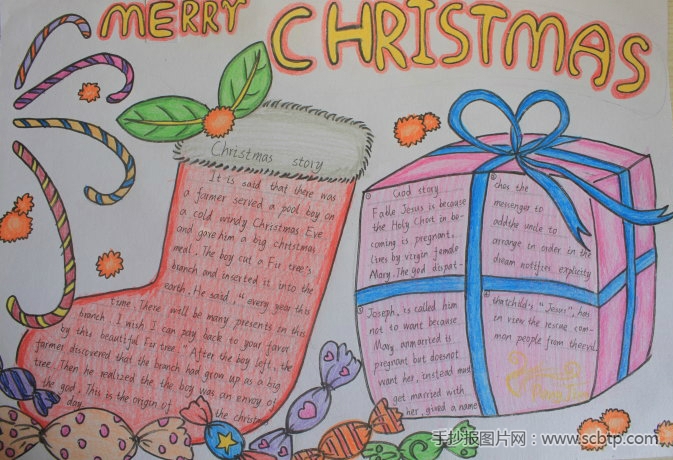 MERRY CHRISTMAS
Christmas story
It is said that there was
a farmer served a pool boy on
a cold windy Christmas Eve
and gave him a big christmas
meal. The boy cut a Fir tree's
branch and inserted it into the
earth. He said, "every year this
time. There will be many presents in this
branch. I wish I can pay back to your favor
by this beautiful Fir tree." After the boy left, the
farmer discovered that the branch had grow up as a big
tree. Then he realized the the boy was an envoy of
the god. This is the origin of the christmas
day.
① God story
Fable Jesus is because
the Holy Ghost in be-
coming is pregnant,
lives by virgin female
Mary. The god dispat-
② ches the
messenger to
addthe unile to
arrange in order in the
dream notifies explicity
③ Joseph, is called him
not to want because
Mary anmarried is
pregnant but doesnot
want her, instead must
get married with
her, gived a name
④ thatchild's "Jesus", has
in view the rescue com-
mon people from theevil.
手抄报图片网：www.scbtp.com